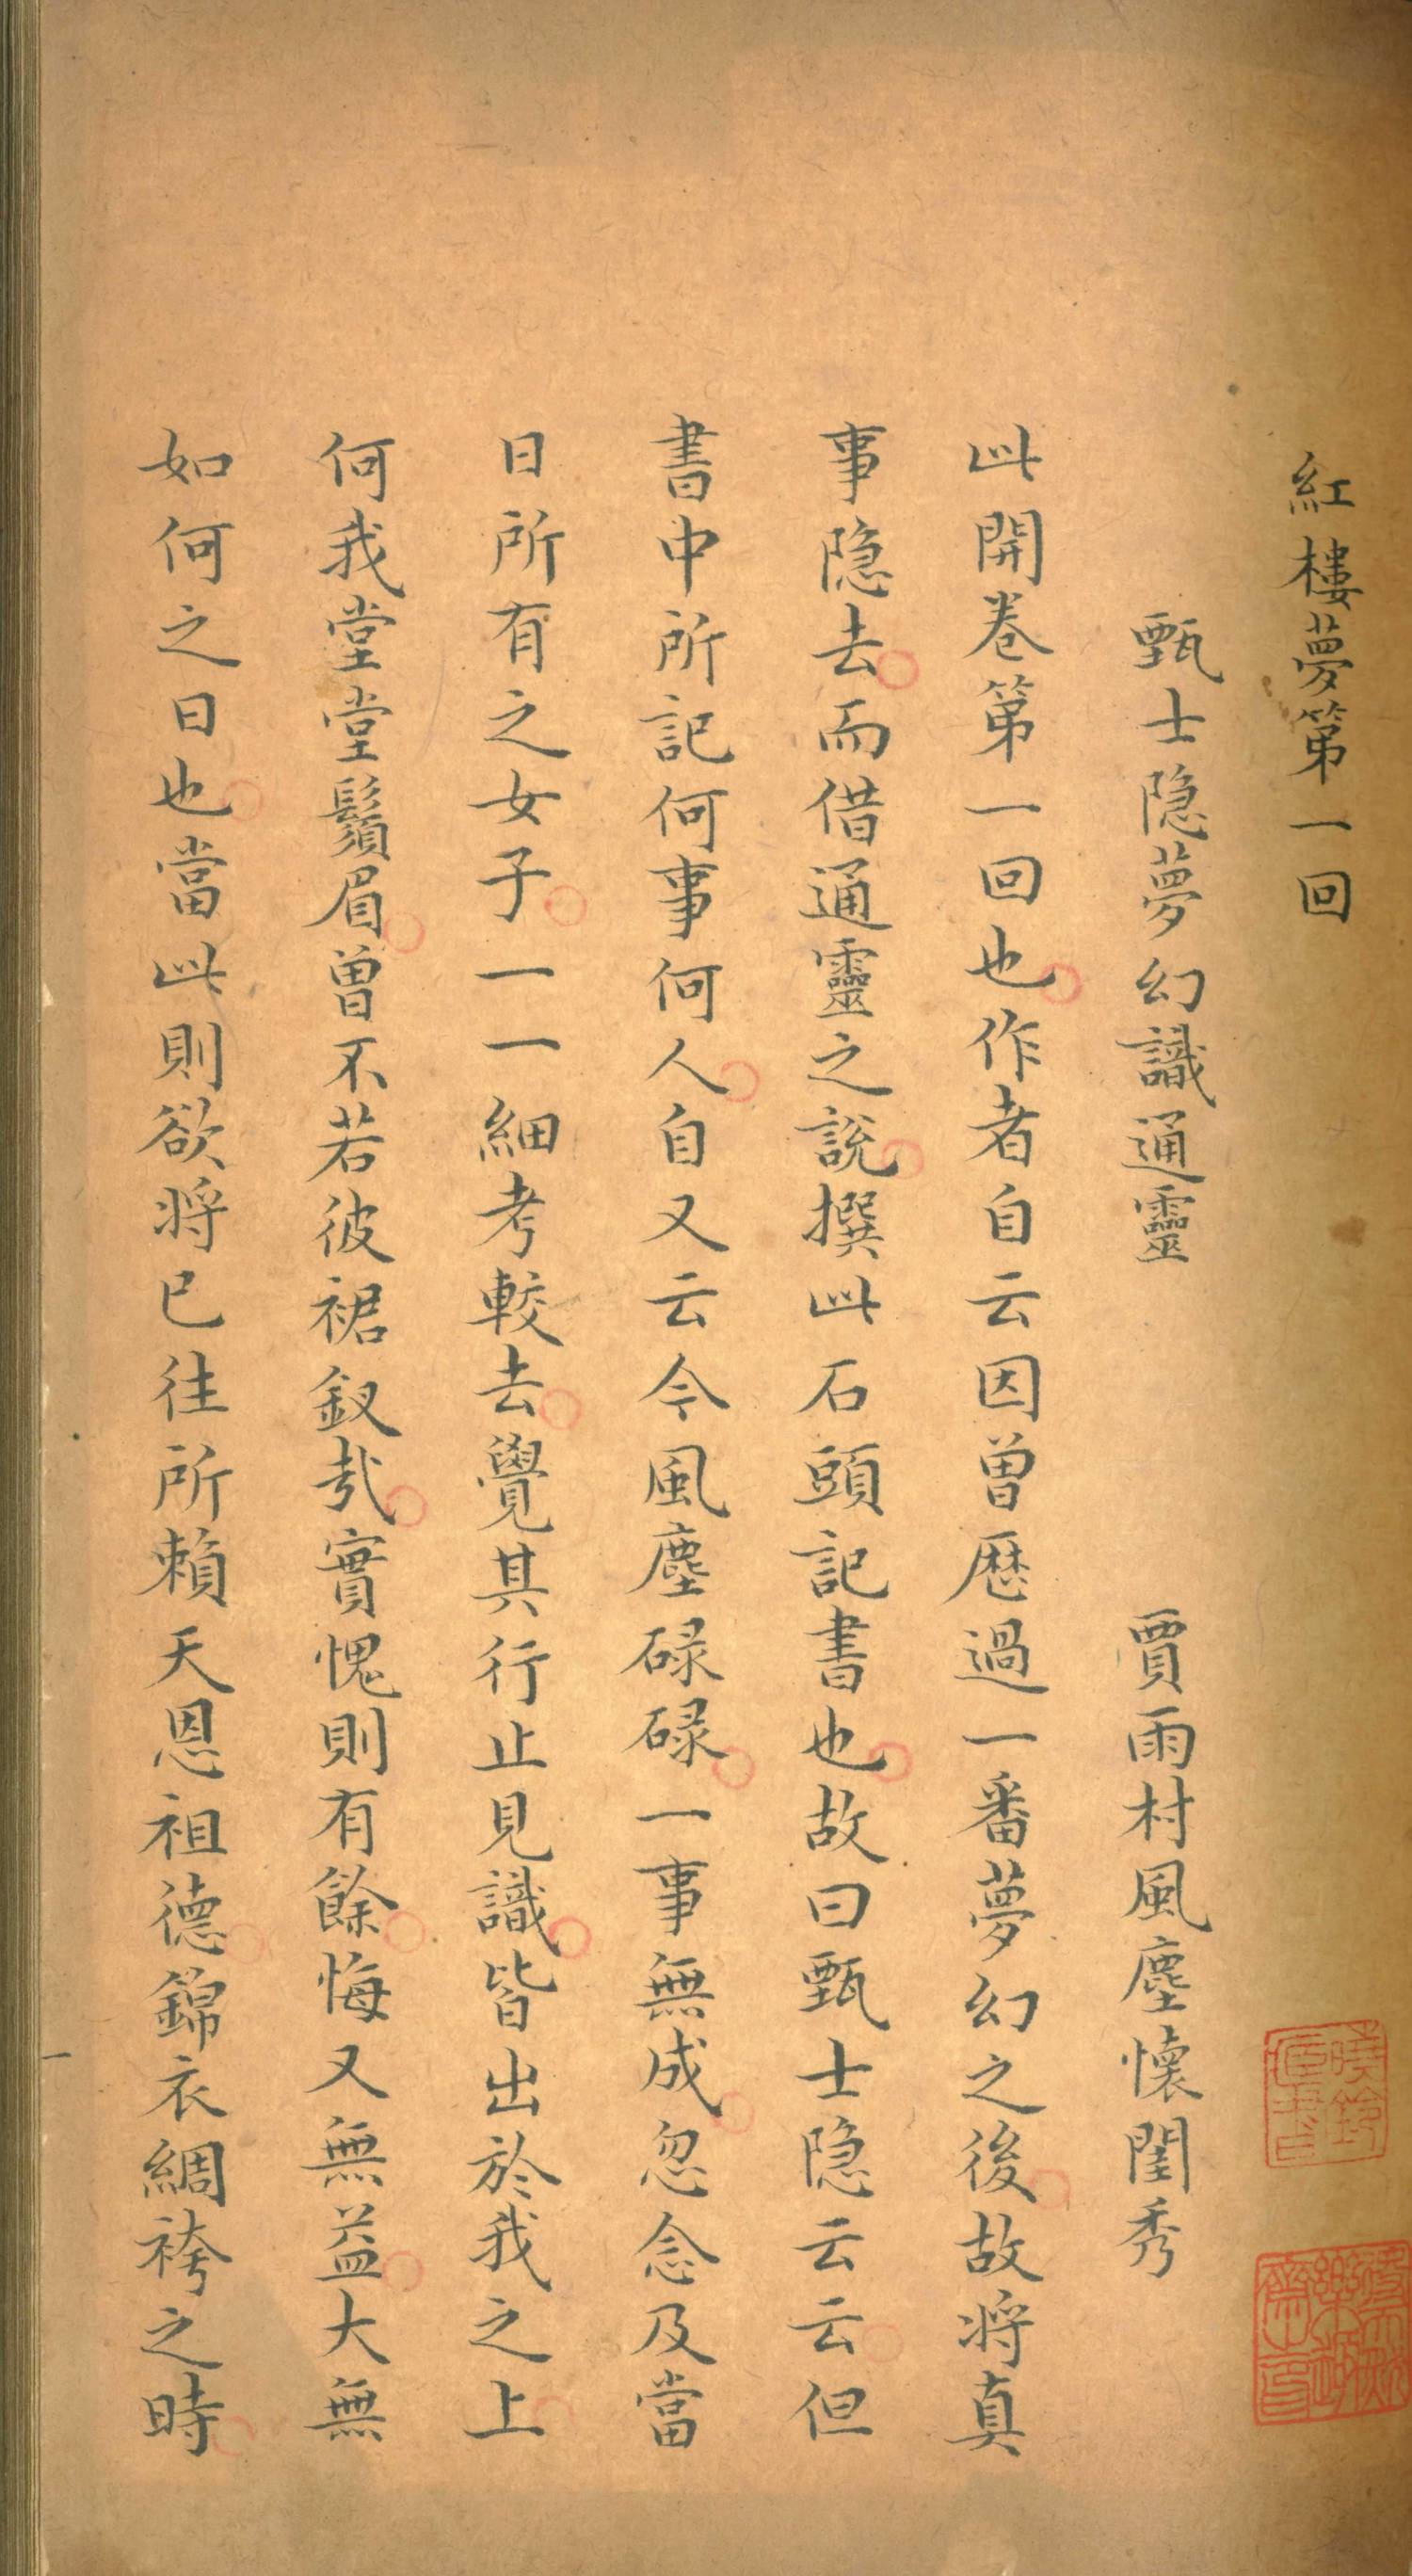 紅樓夢第一回
甄士隐夢幻識通靈　賈雨村風塵懷閨秀
此開卷第一回也作者自云因曽歴過一番夢幻之後故将真
事隐去而借通靈之說撰此石頭記書也故曰甄士隐云云但
書中所記何事何人自又云今風塵碌碌一事無成忽念及當
日所有之女子一一細考較去覺其行止見識皆出於我之上
何我堂堂鬚眉曽不若彼裙釵㢤實愧則有餘悔又無益大無
如何之日也當此則欲将已往所賴天恩祖德錦衣綢袴之時
一